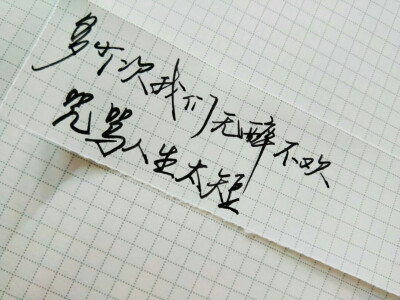 多少次我们无醉不欢
咒骂人生太短